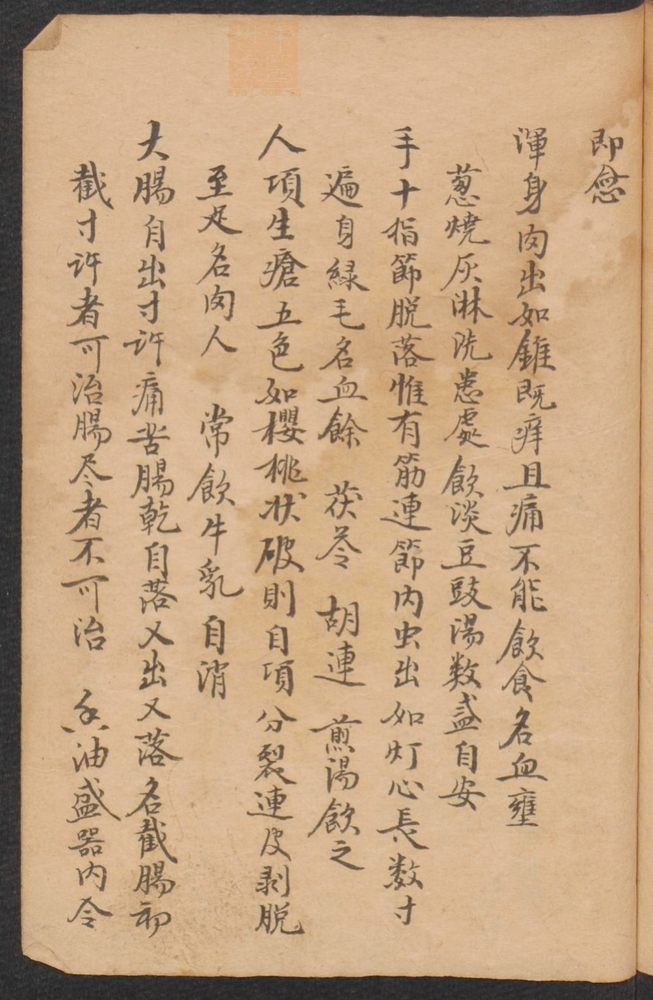 即愈
渾身肉出如錐既痒且痛不能飲食名血壅
葱燒灰淋洗患處飲淡豆豉湯数盞自安
手十指節脱落惟有筋連節内虫出如灯心長数寸
遍身緑毛名血餘 茯苓 胡連 煎湯飲之
人項生瘡五色如櫻桃状破則自項分裂連皮剥脱
至足名肉人 常飲牛乳自消
大腸自出寸許痛苦腸乾自落又出又落名截腸初
截寸許者可治腸尽者不可治 香油盛器内令